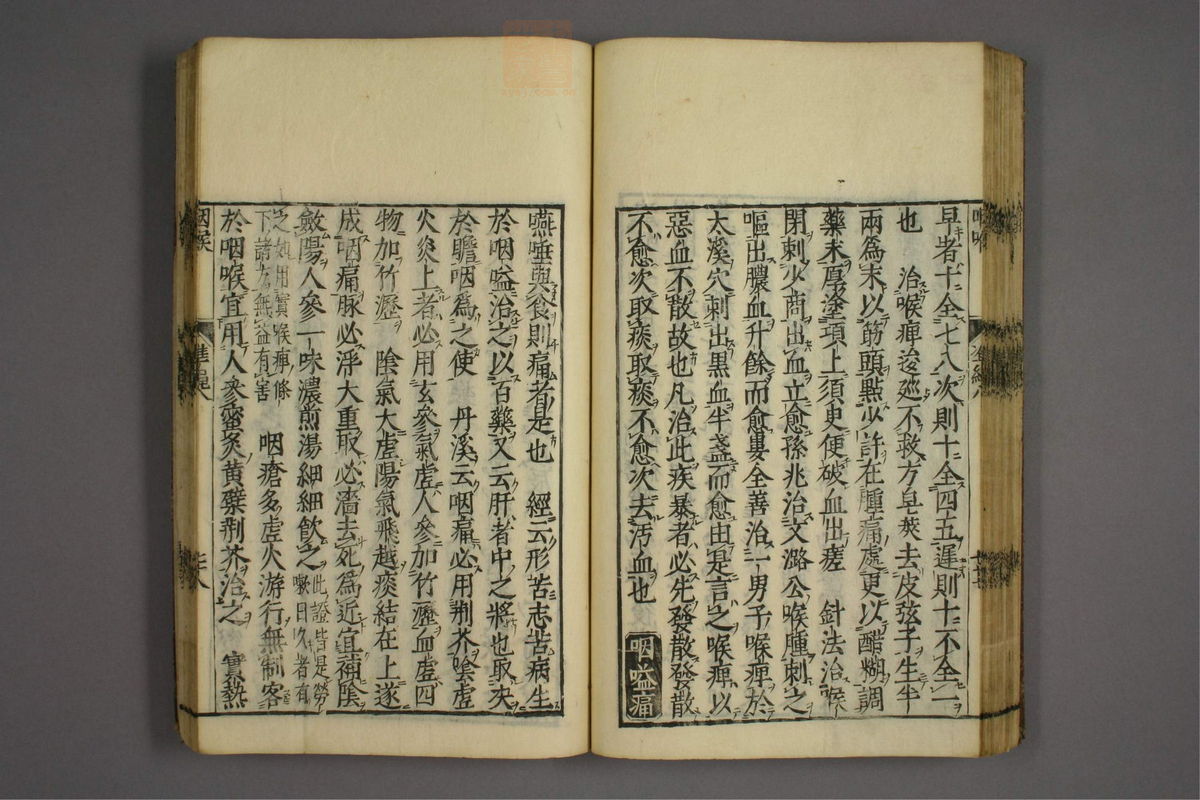 早者十全七八次則十全四五遲則十不全一
也　治喉痺逡廵不救方皂莢去皮弦子生半
兩為末以筯頭點少許在腫痛處更以醋糊調
藥末厚塗項上須臾便破血出瘥　針法治喉
閉刺少商出血立愈孫兆治文潞公喉腫刺之
嘔出膿血升餘而愈婁全善治一男子喉痺於
太溪穴刺出黑血半盞而愈由是言之喉痺以
惡血不散故也凡治此疾暴者必先發散發散
不愈次取痰取痰不愈次去汚血也
咽嗌痛
嚥唾與食則痛者是也　經云形苦志苦病生
於咽嗌治之以百藥又云肝者中之將也取决
於膽咽為之使　丹溪云咽痛必用荆芥陰虛
火炎上者必用玄參氣虛人參加竹瀝血虛四
物加竹瀝　陰氣大虛陽氣飛越痰結在上遂
成咽痛脉必浮大重取必濇去死為近宜補陰
斂陽人參一味濃煎湯細細飲之此證皆是勞
嗽日久者有
之如用實喉痺條
下諸方無益有害　咽瘡多虛火游行無制客
於咽喉宜用人參蜜炙黃蘗荆芥治之　實熱
咽喉